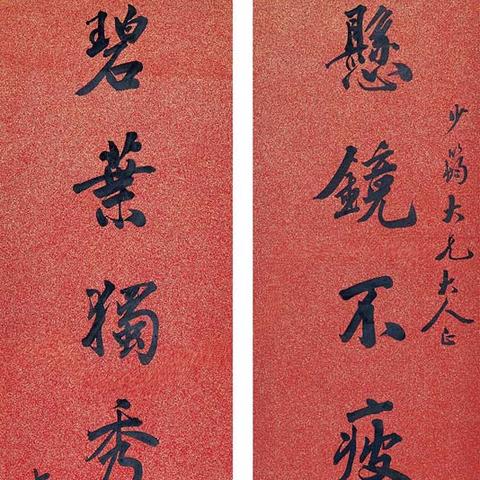 少大兄大人正
懸鏡不疲
碧葉獨秀